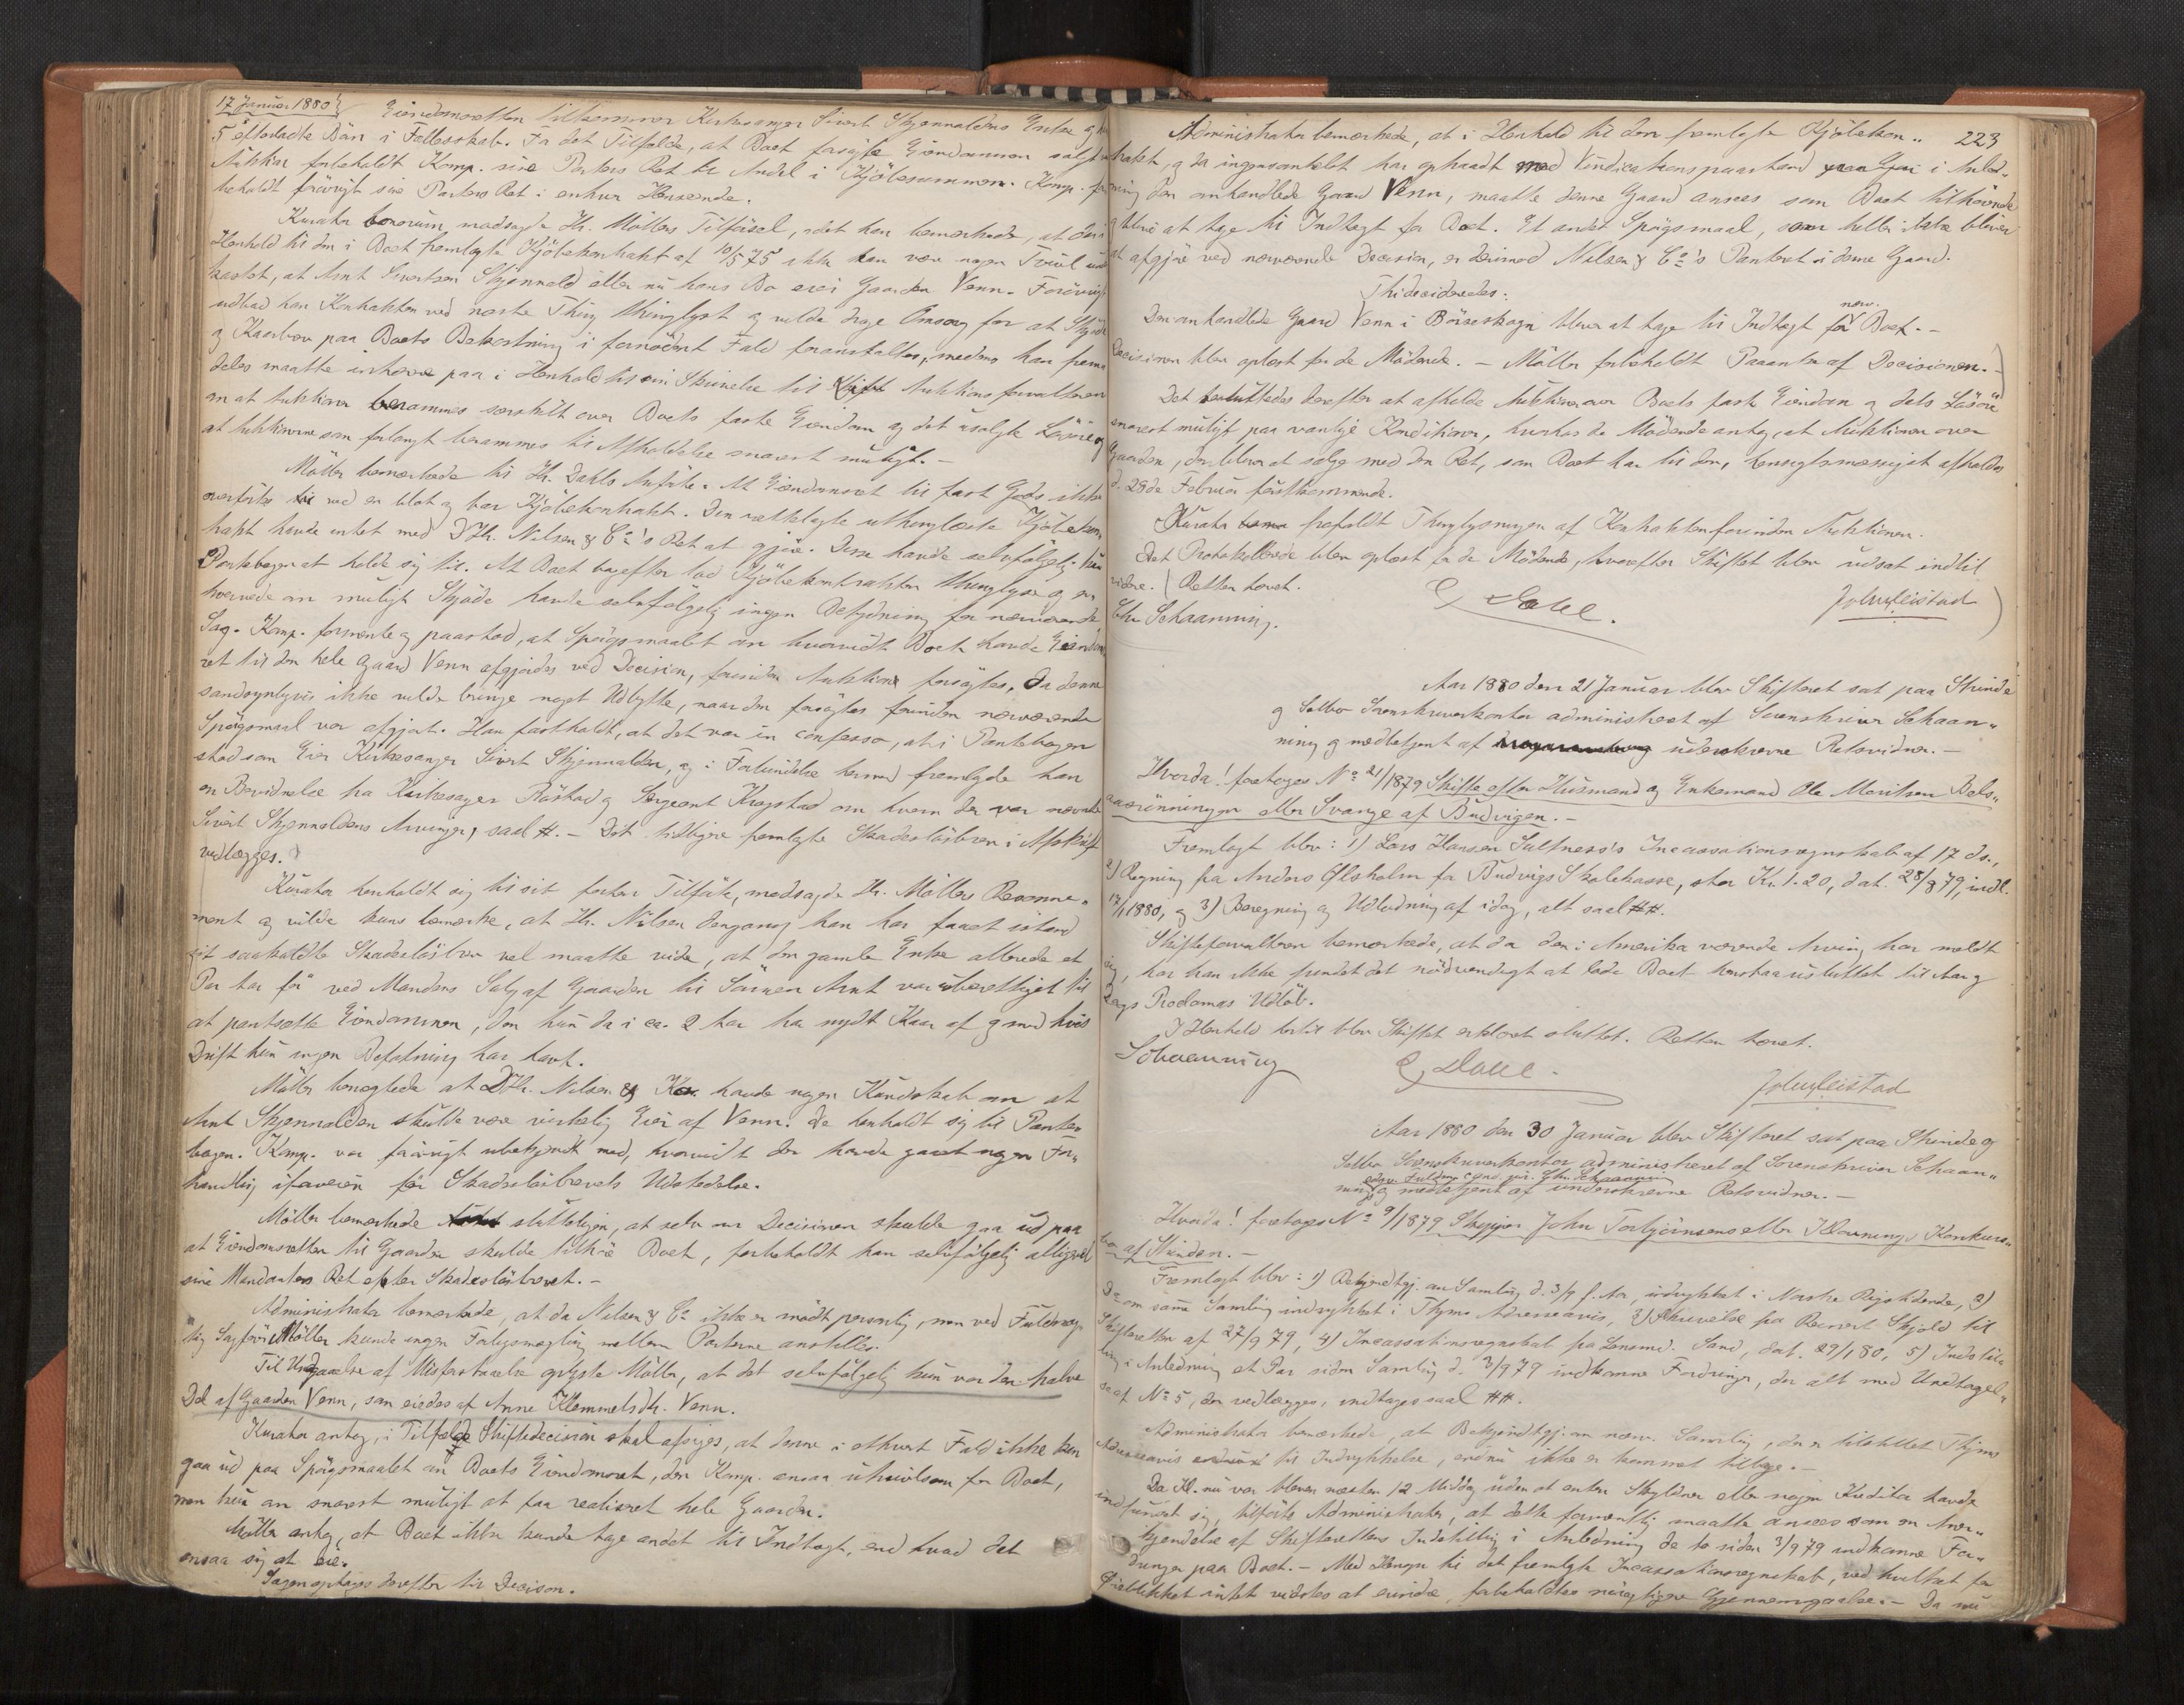 17 Januar 1880
Eiendomsretten tilkommer Kirkesanger Sivert Skjennaldens Enke og
5 efterladte Børn i Fællesskab. Fa det Tilfælde, at Boet faar Eiendommen solgt ved
Auktion forbeholdt Komp. sine Parters Ret til Andel i Kjøbesummen. Komp. for
beholdt forøvrigt sine Parters Ret i enhver Henseende.
Kurator bonorum modsagde Hr. Møllers Tilførsel, idet han bemærkede, at der i
Henhold til den i Boet fremlagte Kjøbekontrakt af 10/5 75 ikke kan være nogen Tvivl und
kastet, at Arnt Sivertsen Skjennald eller nu hans Bo eier Gaarden Venn. Forøvrigt
udbad han Kontrakten ved næste Thing thinglyst og vilde drage Omsorg for at Skjøde
og Kaarbrev paa Boets Bekostning i fornødent Fald foranstaltes, medens han frem
deles maatte inhærere paa i Henhold til sin Skrivelse til Auktionsforvalteren
om at Auktioner berammes særskilt over Boets faste Eiendom og det usolgte Løsøre og
at Auktionerne som forlangt berammes til Afholdelse snarest muligt. –
Møller bemærkede til Hr. Dahls Anførte. At Eiendomsret til fast Gods ikke
overføres ved en blot og bar Kjøbekontrakt. Den rettelagte uthinglæste Kjøbekon
trakt havde intet med DHr. Nilsen & Co's Ret at gjøre. Disse havde selvfølgelig kun
Pantebogen at holde sig til. At Boet bagefter lod Kjøbekontrakten thinglyse og er
hvervede om muligt Skjøde havde selvfølgelig ingen Betydning for nærværende
Sag. Komp. formente og paastod, at Spørgsmaalet om hvorvidt Boet havde Eiendoms
ret til den hele Gaard Venn afgjordes ved Decision, forinden Auktion forsøgtes, da denne
sandsynligvis ikke vilde bringe noget Udbytte, naar den forsøgtes forinden nærværende
Spørgsmaal var afgjort. Han fastholdt, at det var in confesso, at i Pantebogen
stod som Eier Kirkesanger Sivert Skjennalden, og i Forbindelse hermed fremlagde han
en Bevidnelse fra Kirkesanger Røstad og Sergeant Krogstad om hvem der var nævnte
Sivert Skjennaldens Arvinger, saal. #. – Det tidligere fremlagte Skadesløsbrev i Afskrift
vedlægges.
Kurator henholdt sig til sit forhen Tilførte, modsagde Hr. Møllers Raisonne„
ment og vilde kun bemærke, at Hr. Nilsen dengang han har faaet istand
sit saakaldte Skadesløsbrev vel maatte vide, at den gamle Enke allerede et
Par Aar før ved Mandens Salg af Gaarden til Sønnen Arnt var uberettiget til
at pantsætte Eiendommen, den hun da i ca. 2 Aar har nydt Kaar af og med hvis
Drift hun ingen Befatning har havt.
Møller benegtede at DHr. Nilsen & Ko. havde nogen Kundskab om at
Arnt Skjennalden skulde være virkelig Eier af Venn. De henholdt sig til Pante„
bogen. Komp. var forøvrigt ubekjendt med, hvorvidt der havde gaaet nogen For„
handling iforveien før Skadesløsbrevets Udstedelse.
Møller bemærkede sluttelig, at selv om Decisionen skulde gaa ud paa
at Eiendomsretten til Gaarden skulde tilhøre Boet, forbeholdt han selvfølgelig alligevel
sine Mandanters Ret efter Skadesløsbrevet. –
Administrator bemærkede, at da Nilsen & Co ikke er mødt personlig, men ved Fuldmæg„
tig Sagfører Møller kunde ingen Forligsmægling mellem Parterne anstilles.
Til Undgaaelse af Misforstaaelse oplyste Møller, at det selvfølgelig kun var den halve
Del af Gaarden Venn, som eiedes af Anne Klemmetsdtr. Venn.
Kurator antog, i Tilfælde Skiftedecision skal afsiges, at denne i ethvert Fald ikke kan
gaa ud paa Spørgsmaalet om Boets Eiendomsret, den Komp. ansaa utvivlsom for Boet,
men kun om snarest muligt at faa realiseret hele Gaarden.
Møller antog, at Boet ikke kunde tage andet til Indtægt, end hvad det
ansaa sig at eie.
Sagen optages derefter til Decision.
223
Administrator bemærkede, at i Henhold til den fremlagte Kjøbekon„
trakt, og da ingensomhelst har optraadt med Vindicationspaastand i Anled„
ning den omhandlede Gaard Venn, maatte denne Gaard ansees som Boet tilhørende
og blive at tage til Indtægt for Boet. Et andet Spørgsmaal, som heller ikke bliver
at afgjøre ved nærværende Decision, er derimod Nilsen & Co's Panteret i denne Gaard.
Thi decideredes:
Den omhandlede Gaard Venn i Børseskogn bliver at tage til Indtægt for nærv. Boet. –
Decisionen blev oplæst for de Mødende. – Møller forbeholdt Paaanke af Decisionen. –
Det besluttedes derefter at afholde Auktioner over Boets faste Eiendom og dels Løsøre
snarest muligt paa vanlige Konditioner, hvorhos de Mødende antog, at Auktionen over
Gaarden, der bliver at sælge med den Ret, som Boet har til den, hensigtsmæssigst afholdes
d. 28de Februar førstkommende.
Kurator frafaldt Thinglysningen af Kontrakten forinden Auktionen.
Det Protokollerede blev oplæst for de Mødende, hvorefter Skiftet blev udsat indtil
videre. Retten hævet.
Chr Schaanning.
E Dahl.
John Leistad
Aar 1880 den 21 Januar blev Skifteret sat paa Strinde
og Selbo Sorenskriverkontor administreret af Sorenskriver Schaan„
ning og medbetjent af underskrevne Retsvidner. –
Hvorda! foretoges No 21/1879 Skifte efter Husmand og Enkemand Ole Moritsen Bels„
aarønningen eller Svarge af Budvigen. –
Fremlagt blev: 1) Lars Hansen Saltness's Incassationsregnskab af 17 ds.,
2) Regning fra Anders Ølsholm for Budvigs Skolekasse, stor Kr. 1.20, dat. 28/8 79, indl.
17/1 1880, og 3) Beregning og Udlodning af idag, alt saal. ##.
Skifteforvalteren bemærkede, at da den i Amerika værende Arving har meldt
sig, har han ikke fundet det nødvendigt at lade Boet henstaa usluttet til Aar og
Dags Proclamas Udløb.
I Henhold hertil blev Skiftet erklæret sluttet. Retten hævet.
Schaanning
E Dahl.
John Leistad
Aar 1880 den 30 Januar blev Skifteret sat paa Strinde og
Selbo Sorenskriverkontor administreret af Sorenskriver Schaan„
ning edsv. Fuldm. cand. jur. Chr. Schaanning og medbetjent af underskrevne Retsvidner. –
Hvorda! foretoges No 9/1879 Skipper John Torbjørnsens eller Klonnings Konkurs„
bo af Strinden. –
Fremlagt blev: 1) Bekjendtgj. om Samling d. 3/9 f. Aar, indrykket i Norske Rigstidende, 2)
Do om samme Samling indrykket i Thjems Adresseavis, 3) Skrivelse fra Reinert Skjold til
Skifteretten af 27/9 79, 4) Incassationsregnskab fra Lensmd. Sand, dat. 29/1 80, 5) Indstil
ling i Anledning et Par siden Samling d. 3/9 79 indkomne Fordringer, der alt med Undtagel„
se af No 5, der vedlægges, indtages saal. ##.
Administrator bemærkede, at Bekjendtgj. om nærv. Samling, der er tilstillet Thjems
Adresseavis til Indrykkelse, endnu ikke er kommet tilbage. –
Da Kl. nu var bleven næsten 12 Middag uden at enten Skyldner eller nogen Kreditor havde
indfundet sig, tilførte Administrator, at dette formentlig maatte ansees som en Aner„
kjendelse af Skifterettens Indstilling i Anledning de to siden 3/9 79 indkomne For„
dringer paa Boet. – Med Hensyn til det fremlagte Incassationsregnskab, ved hvilket for
Øieblikket intet vidstes at erindre, forbeholdtes nøiagtigere Gjennemgaaelse. – Da nu